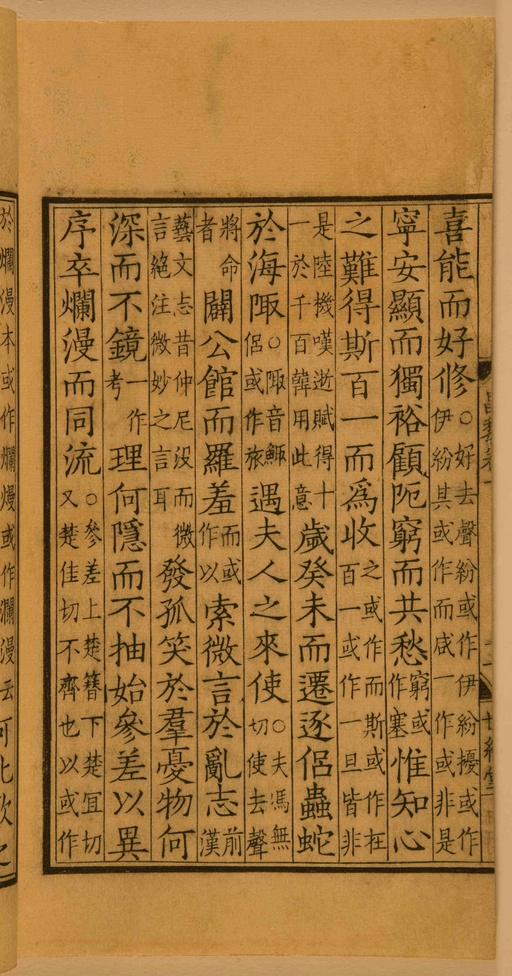 喜能而好修○好去聲紛或作伊紛擾或作伊紛其或作而感一作或非是
寧安顯而獨裕顧阨窮而共愁窮或作塞惟知心
之難得斯百一而爲收之或作而斯或作在百一或作一旦皆非
是陸機嘆逝賦得十一於千百韓用此意歲癸未而遷逐侶蟲蛇
於海陬○陬音鯫侶或作旅遇夫人之來使○夫馮無切使去聲
將命者闢公館而羅羞而或作以索微言於亂志前漢
藝文志昔仲尼沒而微言絕注微妙之言耳發孤笑於羣憂物何
深而不鏡一作考理何隱而不抽始參差以異
序卒爛漫而同流○參差上楚簪下楚宜切又楚佳切不齊也以或作
於爛漫本或作爛熳或作瀾漫云